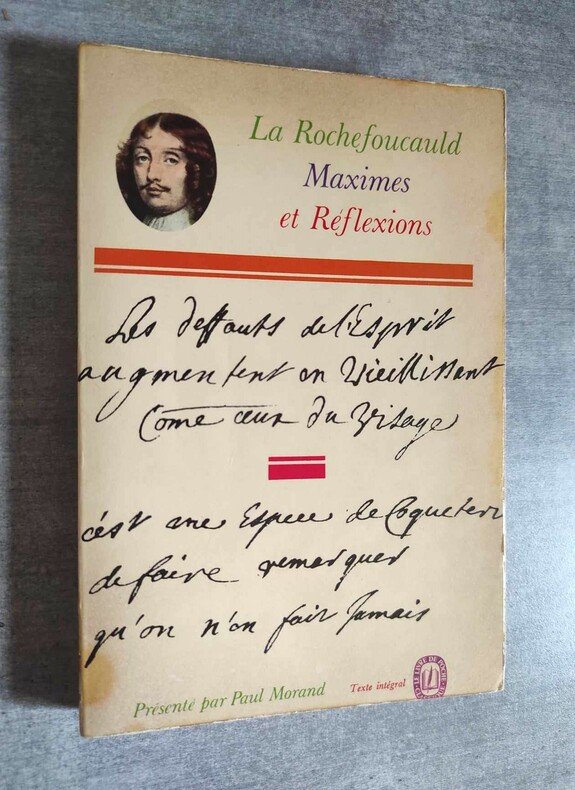 La Rochefoucauld
Maximes
et Réflexions
Les deffauts de l'Esprit
augmentent en Vieillissant
Come ceux du Visage
c'est une Espece de Coqueteri
de faire remarquer
qu'on n'en fait Jamais
Présenté par Paul Morand
Texte intégral
LE LIVRE DE POCHE